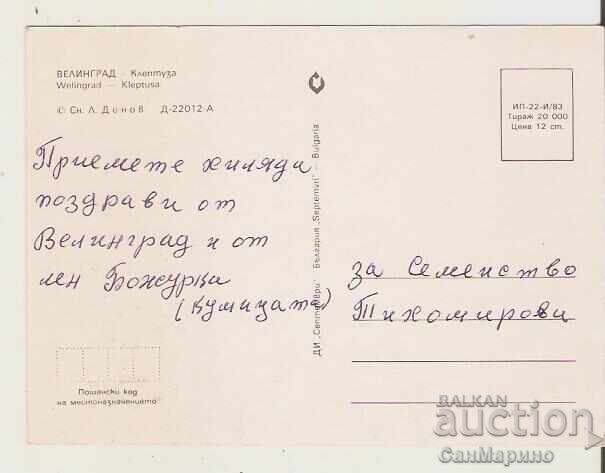 ВЕЛИНГРАД - Клептуза
Welingrad — Kleptusa
© Сн. Л. Донов Д-22012-А
ИП-22-И/83
Тираж 20 000
Цена 12 ст.
Приемете хиляди
поздрави от
Велинград и от
мен Божурка
(Кумицата)
ДИ „Септември" България „Septemvri" — Bulgaria
за Семейство
Тихомирови
Пощенски код
на местоназначението
BALKAN
auction
СанМарино